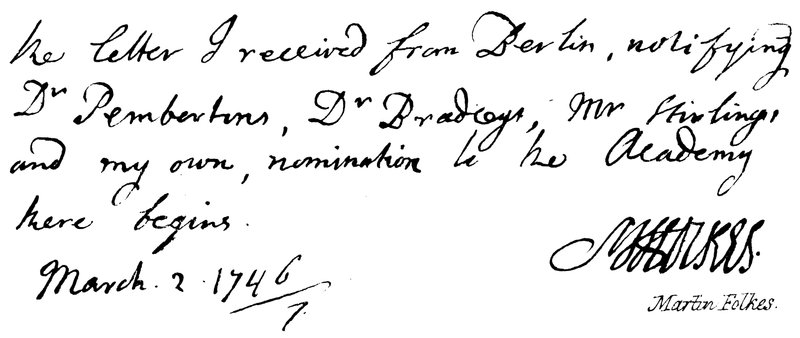 the letter I received from Berlin, notifying
Dr Pembertons, Dr Bradleys, Mr Stirlings
and my own, nomination to the Academy
there begins.
March. 2. 1746/7.
MFOLKES.
Martin Folkes.